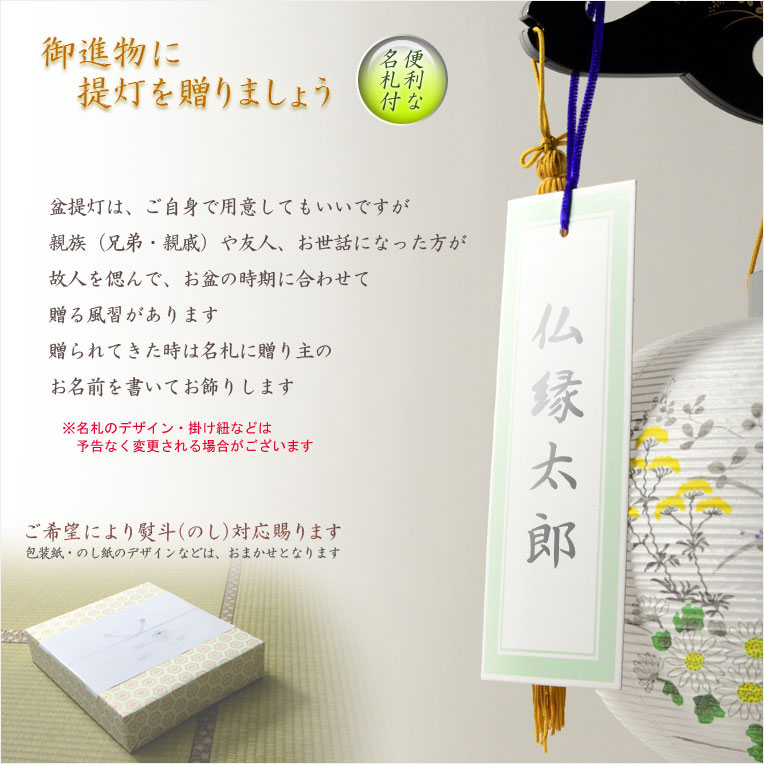 御進物に
提灯を贈りましょう
便利な
名札付
盆提灯は、ご自身で用意してもいいですが
親族（兄弟・親戚）や友人、お世話になった方が
故人を偲んで、お盆の時期に合わせて
贈る風習があります
贈られてきた時は名札に贈り主の
お名前を書いてお飾りします
※名札のデザイン・掛け紐などは
予告なく変更される場合がございます
ご希望により熨斗（のし）対応賜ります
包装紙・のし紙のデザインなどは、おまかせとなります
仏縁太郎